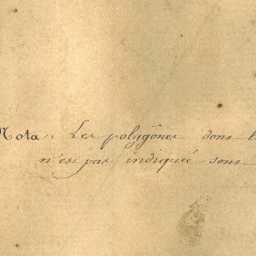 Nota. Les polygônes dont l
n'est pas indiquée sont